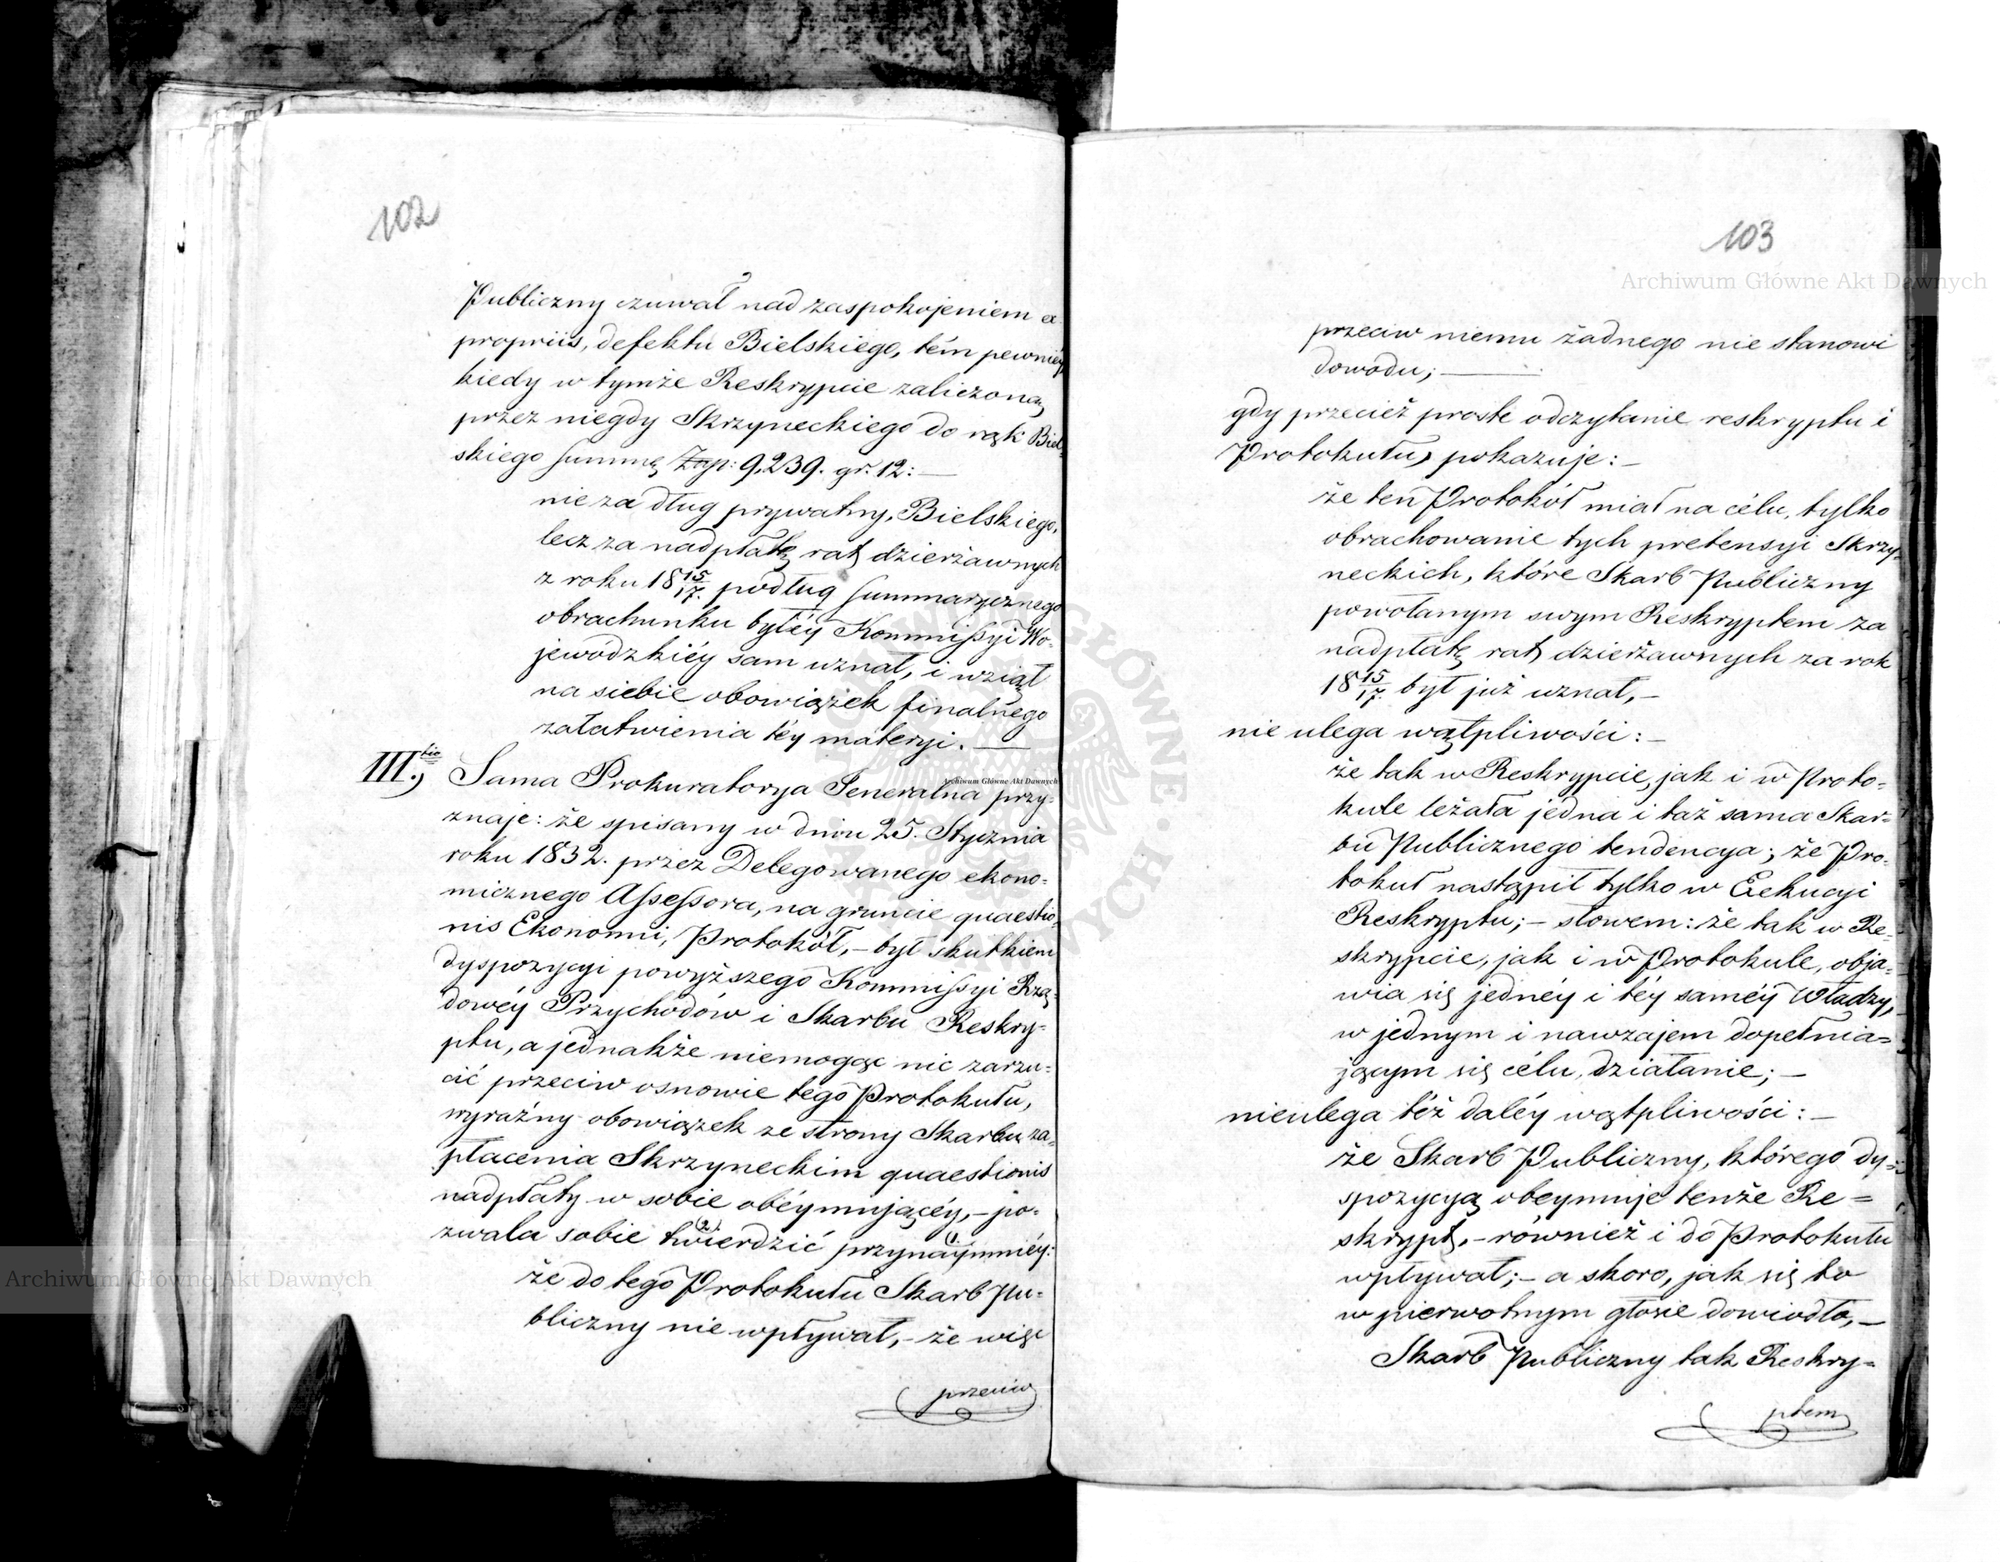 102
Publiczny czuwał nad zaspokojeniem ex
propriis, defektu Bielskiego, tém pewniéy
kiedy w tymże Reskrypcie zaliczoną,
przez niegdy Skrzyneckiego do rąk Biel-
skiego Summę Złp: 9,239. gr. 12: —
nie za dług prywatny, Bielskiego,
lecz za nadpłatę rat dzierżawnych
z roku 18 15/17. podług Summarycznego
obrachunku byłéy Kommissyi Wo-
jewódzkiéy sam uznał, i wziął
na siebie obowiązek finalnego
załatwienia téy materyi. —
III.tio, Sama Prokuratorya Generalna przy-
znaje: że spisany w dniu 25. Stycznia
roku 1832. przez Delegowanego ekono-
micznego Assessora, na gruncie quaestio-
nis Ekonomii, Protokół, – był skutkiem
dyspozycyi powyższego Kommissyi Rzą-
dowéy Przychodów i Skarbu Reskry-
ptu, a jednakże niemogąc nic zarzu-
cić przeciw osnowie tego Protokułu,
wyraźny obowiązek ze strony Skarbu za-
płacenia Skrzyneckim quaestionis
nadpłaty w sobie obéymującéy, – po-
zwala sobie twierdzić (2) przynaymniéy (1:
że do tego Protokułu Skarb Pu-
bliczny nie wpływał, – że więc
przeciw
103
przeciw niemu żadnego nie stanowi
dowodu; —
gdy przecież proste odczytanie reskryptu i
Protokułu, pokazuje: –
że ten Protokół miał na célu, tylko
obrachowanie tych pretensyi Skrzy-
neckich, które Skarb Publiczny
powołanym swym Reskryptem za
nadpłatę rat dzierżawnych za rok
18 15/17. był już uznał, –
nie ulega wątpliwości: –
że tak w Reskrypcie, jak i w Proto-
kule leżała jedna i taż sama Skar-
bu Publicznego tendencya; że Pro-
tokuł nastąpił tylko w Exekucyi
Reskryptu; – słowem: że tak w Re-
skrypcie, jak i w Protokule, obja-
wia się jednéy i téy saméy Władzy,
w jednym i nawzajem dopełnia=
jącym się célu, działanie; –
nieulega téż daléy wątpliwości: –
że Skarb Publiczny, którego dy-
spozycyą obeymuje tenże Re=
skrypt, – również i do Protokułu
wpływał; – a skoro, jak się to
w pierwotnym głosie dowiodło, –
Skarb Publiczny tak Reskry=
ptem
Archiwum Główne Akt Dawnych
Archiwum Główne Akt Dawnych
Archiwum Główne Akt Dawnych